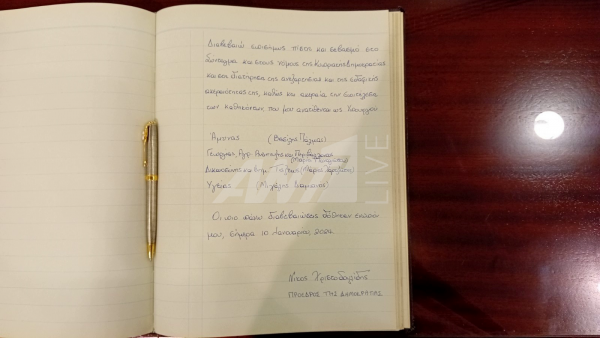 Διαβεβαιώ επισήμως πίστη και σεβασμό στο
Σύνταγμα και στους νόμους της Κυπριακής Δημοκρατίας
και στη διατήρηση της ανεξαρτησίας και της εδαφικής
ακεραιότητας της, καθώς και
των καθηκόντων που μου ανατίθενται ως Υπουργού
Άμυνας (Βασίλης Πάλμας)
Γεωργίας, Αγρ. Ανάπτυξης και Περιβάλλοντος
Μαρία Παναγιώτου
Δικαιοσύνης και Δημ. Τάξεως (Μάριος Χαρτσιώτης)
Υγείας (Μιχάλης Δαμιανός)
Οι πιο πάνω διαβεβαιώσεις δόθηκαν ενώπιόν
μου, σήμερα 10 Ιανουαρίου 2024.
Νίκος Χριστοδουλίδης
ΠΡΟΕΔΡΟΣ ΤΗΣ ΔΗΜΟΚΡΑΤΙΑΣ
ANT1
LIVE